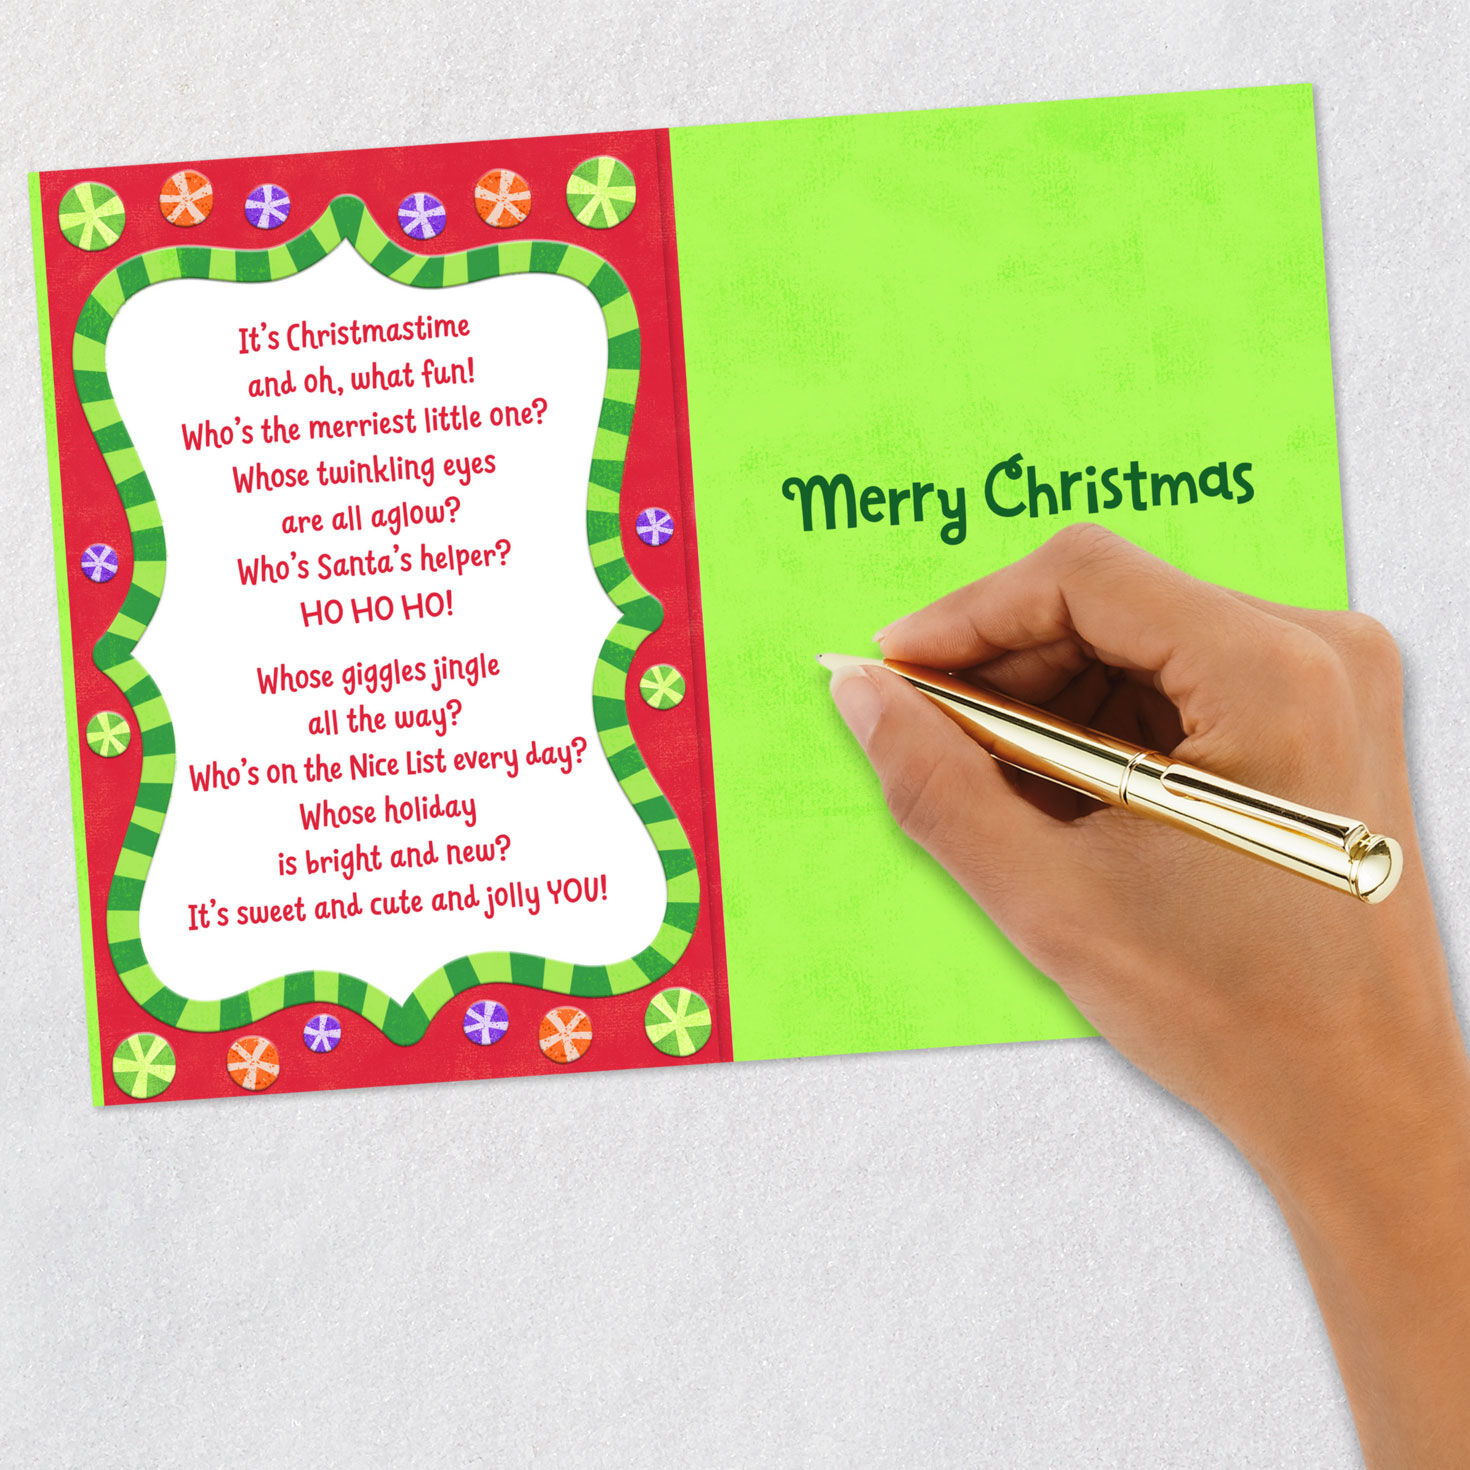 It's Christmastime
and oh, what fun!
Who's the merriest little one?
Whose twinkling eyes
are all aglow?
Who's Santa's helper?
HO HO HO!
Whose giggles jingle
all the way?
Who's on the Nice List every day?
Whose holiday
is bright and new?
It's sweet and cute and jolly YOU!
Merry Christmas